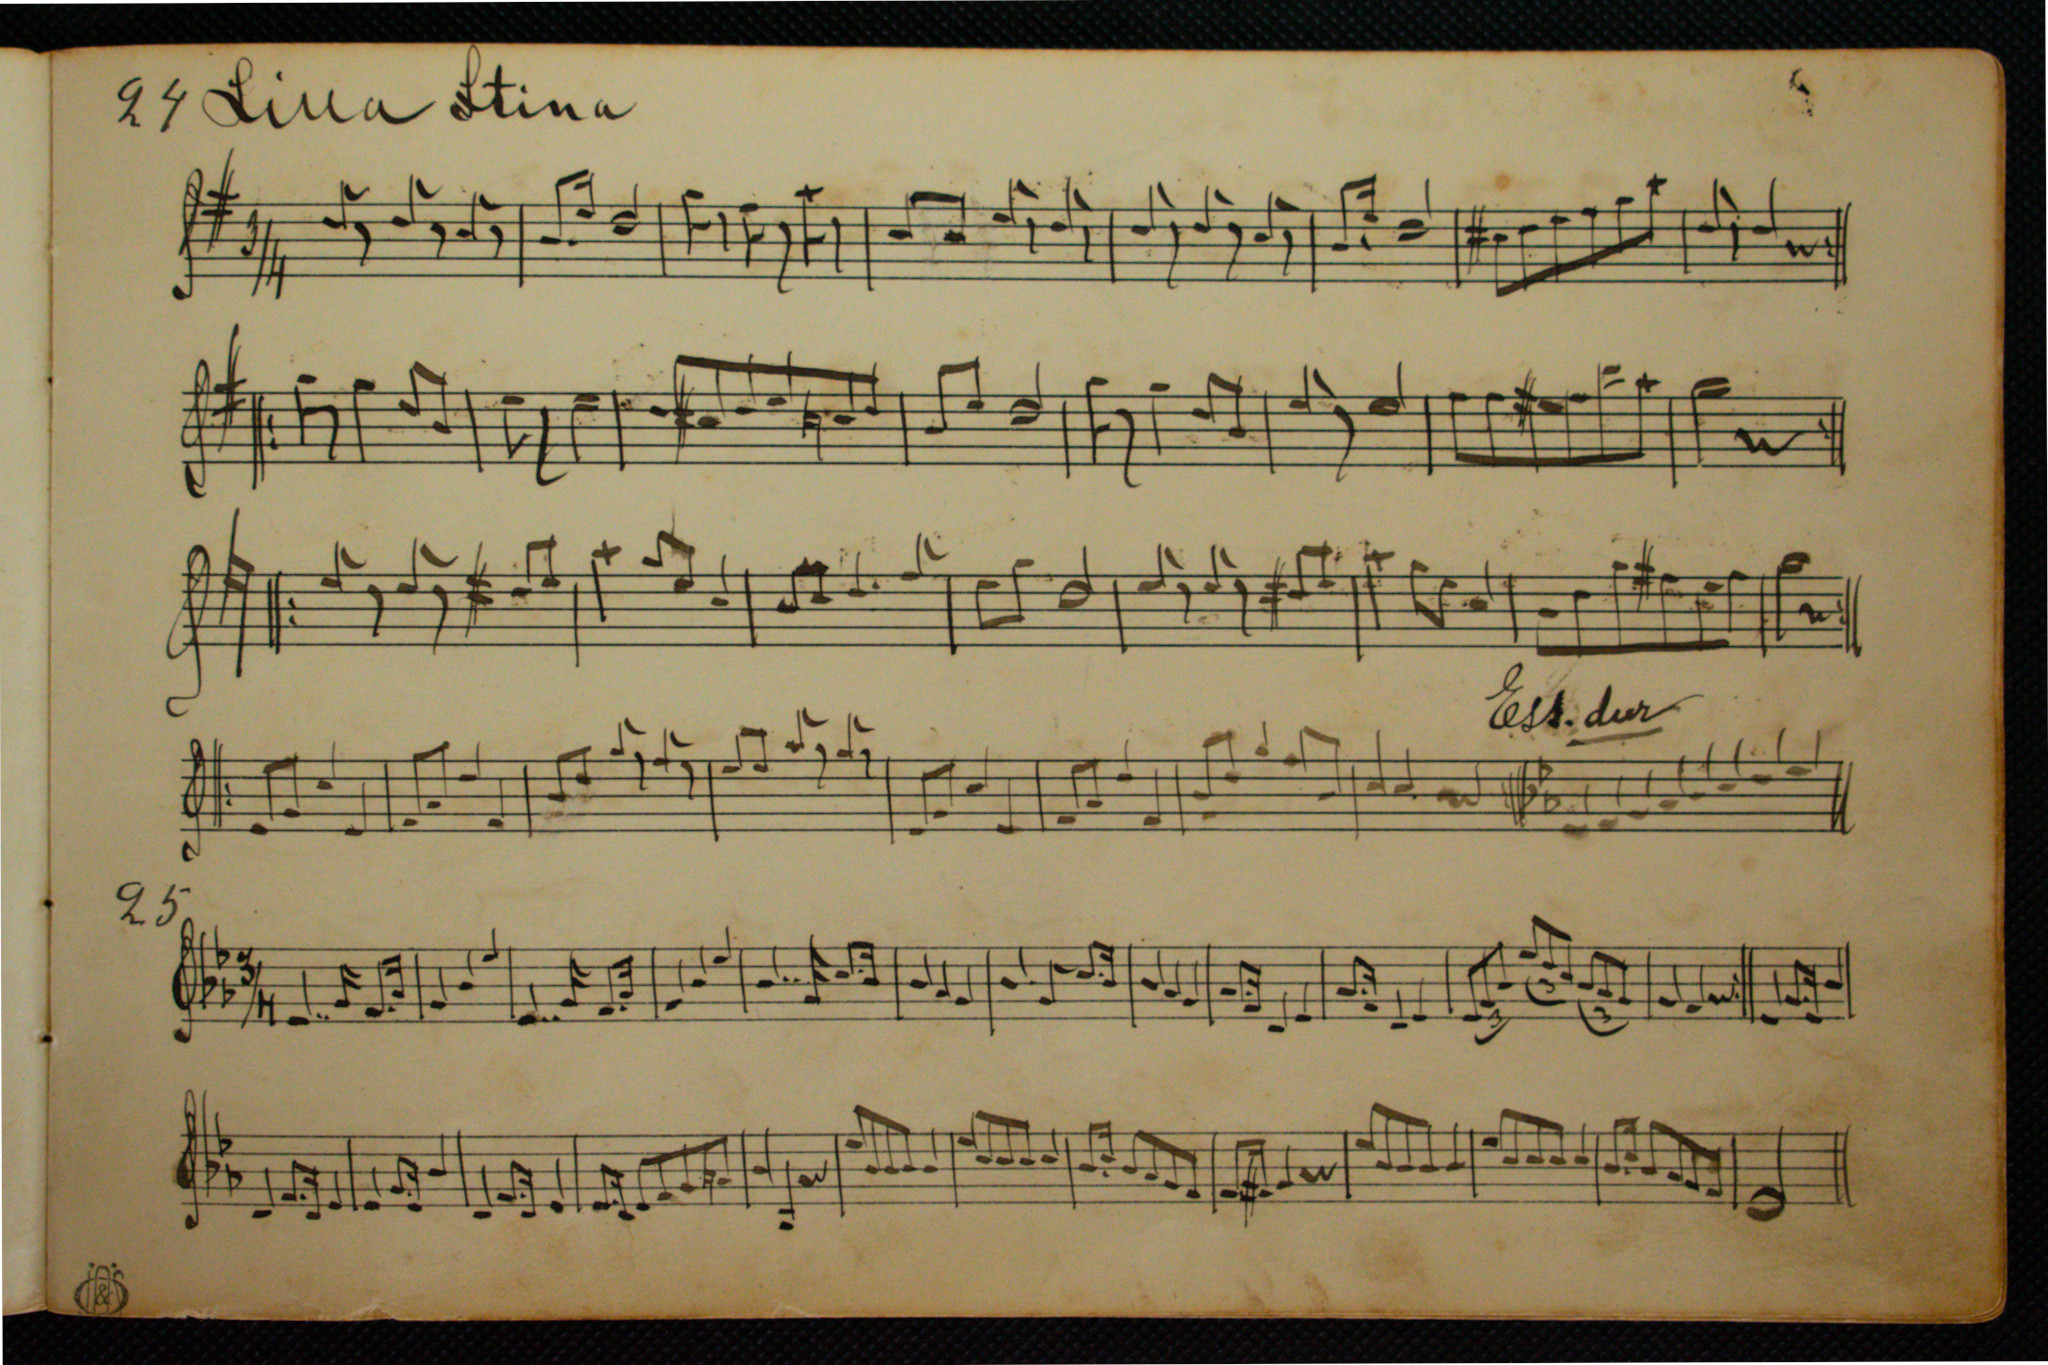 24 Lilla Stina
3/4
Ess. dur
25
3/4
3 3 3